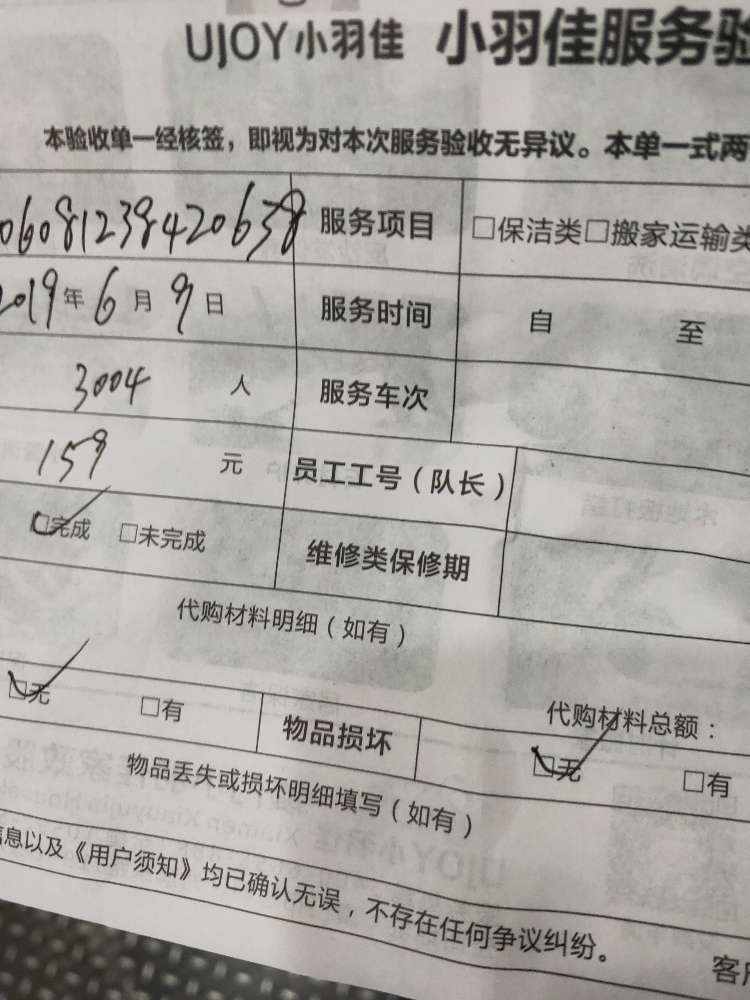 UJOY小羽佳 小羽佳服务验
本验收单一经核签，即视为对本次服务验收无异议。本单一式两
06081239420638 服务项目 □保洁类□搬家运输类
2019年6月9日 服务时间 自 至
3004 人 服务车次
159 元 员工工号（队长）
☑完成 □未完成 维修类保修期
代购材料明细（如有）
代购材料总额：
☑无 □有 物品损坏 ☑无 □有
物品丢失或损坏明细填写（如有）
信息以及《用户须知》均已确认无误，不存在任何争议纠纷。
客户